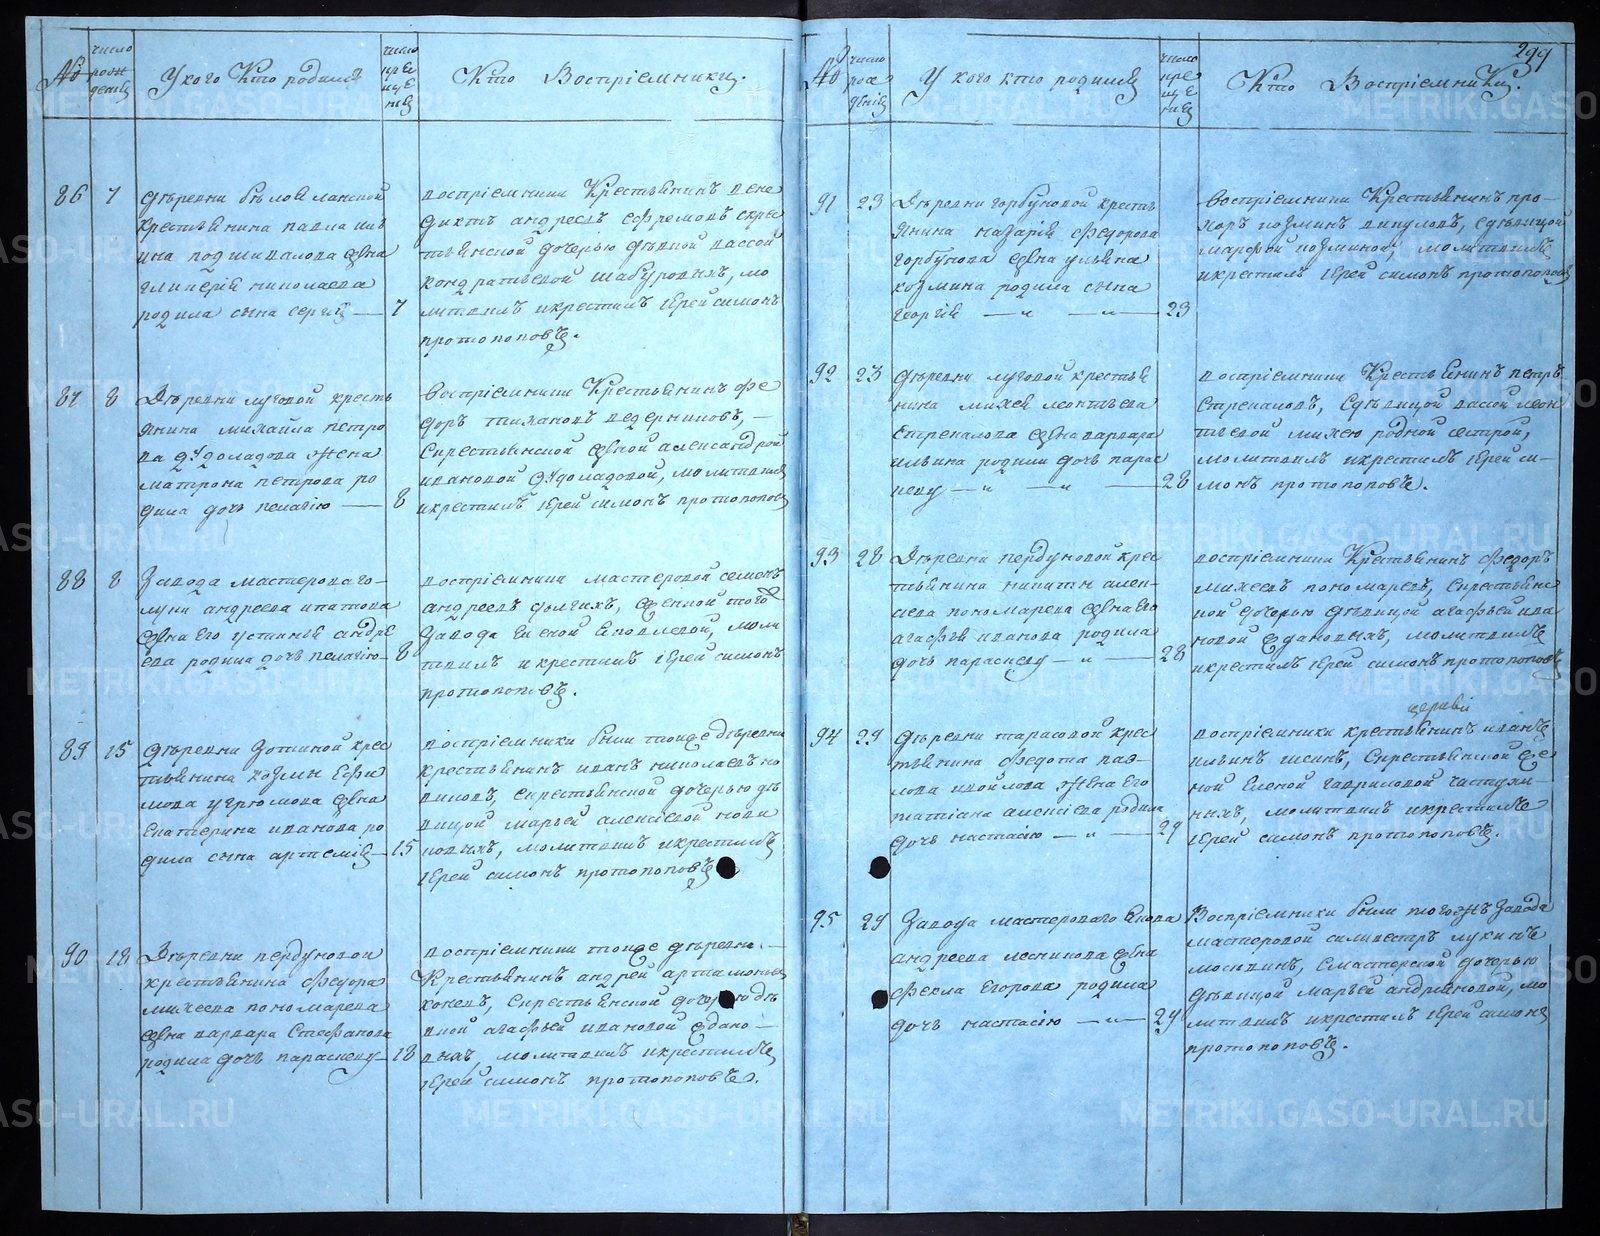 299
№ число рожденія У кого Кто родился число крещенія Кто Воспріемники.
86 7 деревни Беловланской
крестьянина павла
ина подшивалова жена
гликерія николаева
родила сына сергія — 7
воспріемники Крестьянинъ Вене
диктъ андреевъ ефремовъ скрес
тьянской дочерью девкой вассой
кондратьевой шабуровыхъ, мо
литвилъ икрестилъ іерей симонъ
протопоповъ.
87 8 Деревни луговой кресть
янина михайла петро
ва жена
матрона петрова ро
дила дочь пелагію — 8
Воспріемники Крестьянинъ Фе
доръ тихановъ ведерниковъ, —
скрестьянской женой александрой
ивановой молитвилъ
икрестилъ іерей симонъ протопоповъ
88 8 Завода мастероваго
луки андреева ипатова
жена Его устинья андре
ева родила дочь пелагію — 8
воспріемники мастеровой семенъ
андреевъ долгихъ, Сженкой тогоже
Завода Еленой моли
твилъ и крестилъ іерей симонъ
протопоповъ.
89 15 деревни Зотиной крес
тьянина козмы Ефи
мова угрюмова жена
Екатерина иванова ро
дила сына артемія — 15
воспріемники были тоиже деревни
крестьянинъ иванъ николаевъ но
виковъ, скрестьянской дочерью де
вицой марьей алексіевой нови
ковыхъ, молитвилъ икрестилъ
іерей симонъ протопоповъ
90 18 Деревни пердуновой
крестьянина Федора
михеева пономарева
жена варвара Стефанова
родила дочь параскеву — 18
воспріемники тоиже деревни —
Крестьянинъ андрей артамоновъ
скрестьянской дочерью де
вкой агафьей ивановой ждано —
выхъ, молитвилъ икрестилъ
іерей симонъ протопоповъ.
№ число рожденія У кого кто родился число крещенія Кто Воспріемники.
91 23 Деревни горбуновой кресть
янина назарія Федорова
горбунова жена ульяна
козмина родила сына
георгія — „ — „ — 23
Воспріемники Крестьянинъ про-
хоръ козминъ викуловъ, сдевицой
марфой козминой, молитвилъ
икрестилъ іерей симонъ протопоповъ
92 23 деревни луговой крестья
нина михея леонтьева
стрекалова жена варвара
ильина родила дочь парас
кеву — „ — „ — 28
воспріемники Крестьянинъ петръ
Стрекаловъ, сдевицой вассой леон
тьевой михею родной сестрой,
молитвилъ икрестилъ іерей си-
монъ протопоповъ.
93 28 Деревни пердуновой крес
тьянина никиты алек-
сіева пономарева жена Его
агафья иванова родила
дочь параскеву — „ — 28
воспріемники Крестьянинъ Федоръ
михеевъ пономаревъ, скрестьянс
кой дочерью девицой агафьей ива
новой ждановыхъ, молитвилъ
икрестилъ іерей симонъ протопоповъ
94 29 деревни тарасовой крес
тьянина Федота пав-
лова жена Его
татіана алексіева родила
дочь настасію — „ — 29
воспріемники крестьянинъ иванъ
ильинъ скрестьянской же
ной Еленой гавриловой
молитвилъ икрестилъ
іерей симонъ протопоповъ.
95 29 Завода мастероваго
андреева лесникова жена
Фекла Егорова родила
дочь настасію — „ — 29
Воспріемники были тогожъ Завода
мастеровой силивестръ лукинъ
москвинъ, Смастерской дочерью
девицой марьей андреяновой, мо
литвилъ икрестилъ іерей симонъ
протопоповъ.
METRIKI.GASO-URAL.RU